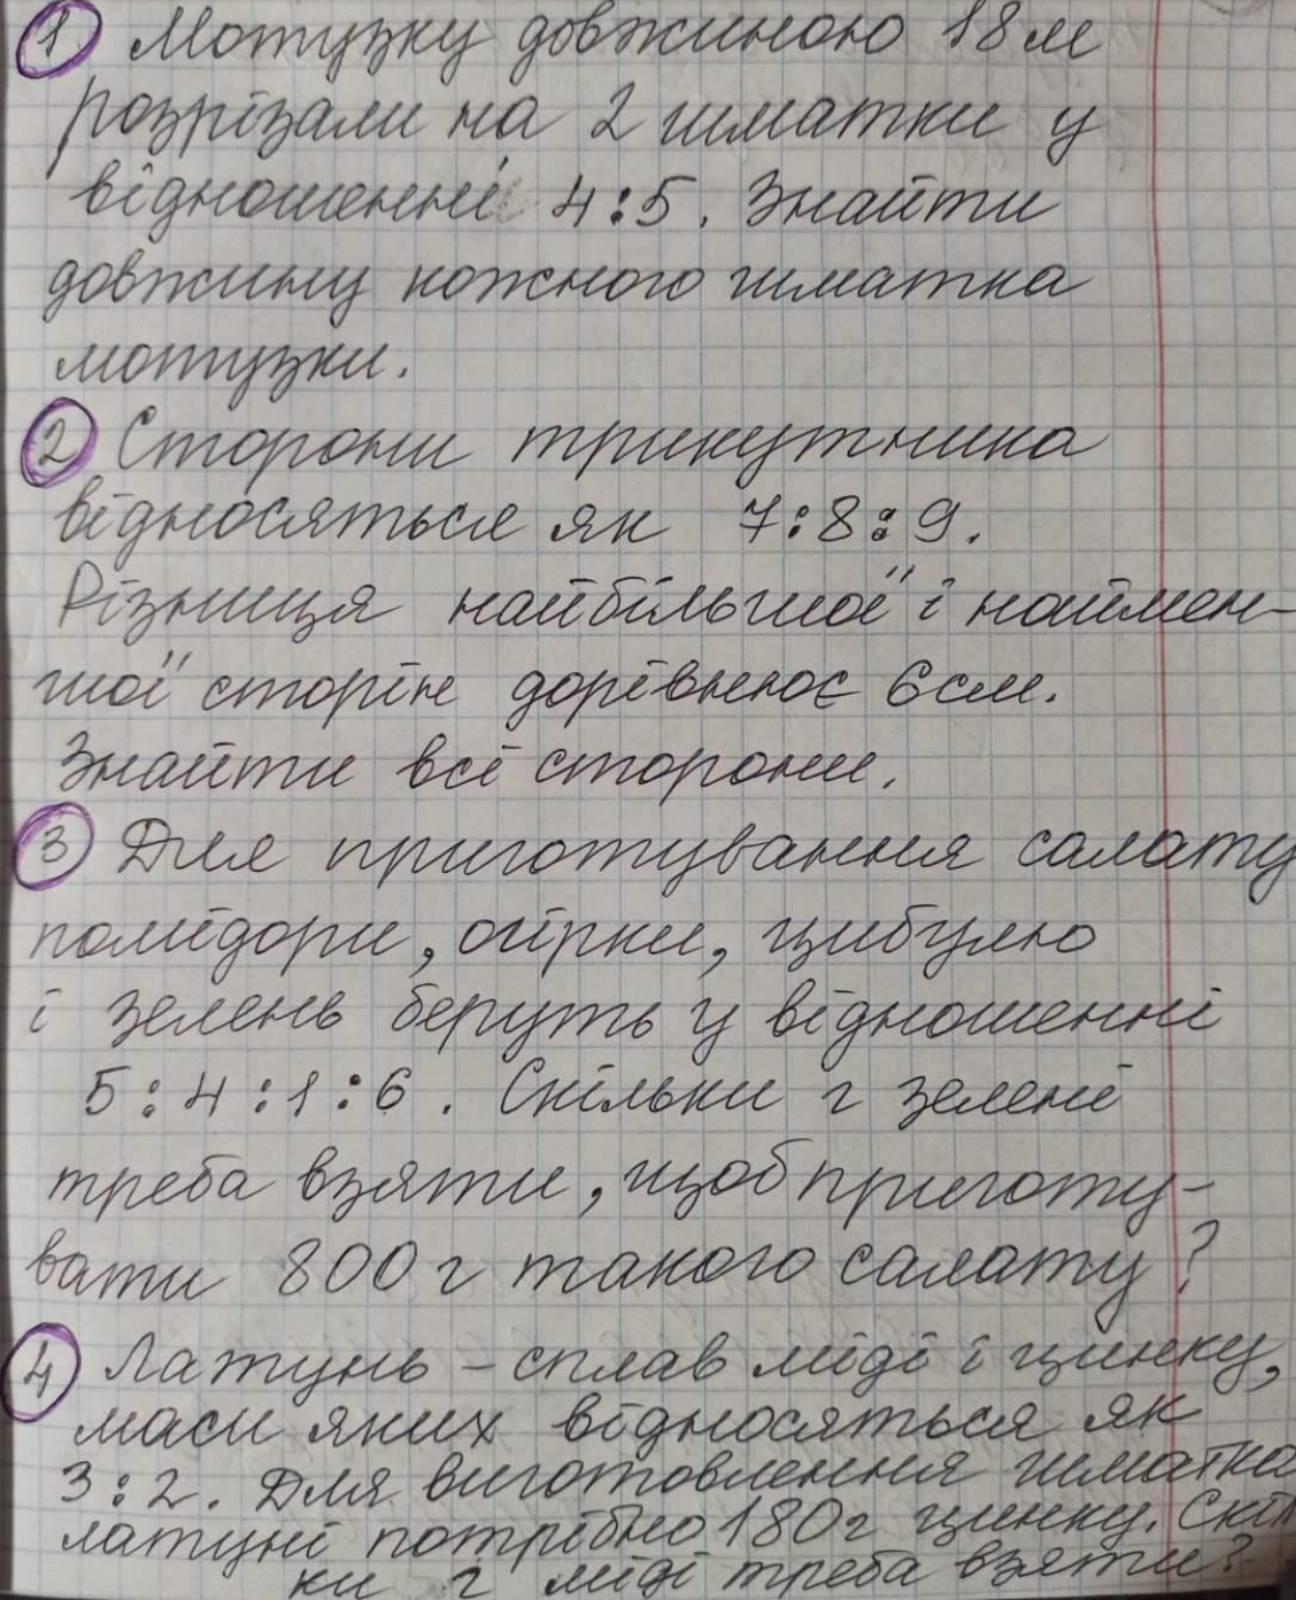 1 Мотузку довжиною 18 м
розрізали на 2 шматки у
відношенні 4:5. Знайти
довжину кожного шматка
мотузки.
2 Сторони трикутника
відносяться як 7:8:9.
Різниця найбільшої і наймен-
шої сторін дорівнює 6 см.
Знайти всі сторони.
3 Для приготування салату
помідори, огірки, цибулю
і зелень беруть у відношенні
5:4:1:6. Скільки г зелені
треба взяти, щоб приготу-
вати 800 г такого салату?
4 Латунь - сплав міді і цинку,
маси яких відносяться як
3:2. Для виготовлення шматка
латуні потрібно 180 г цинку. Скіль
ки г міді треба взяти?